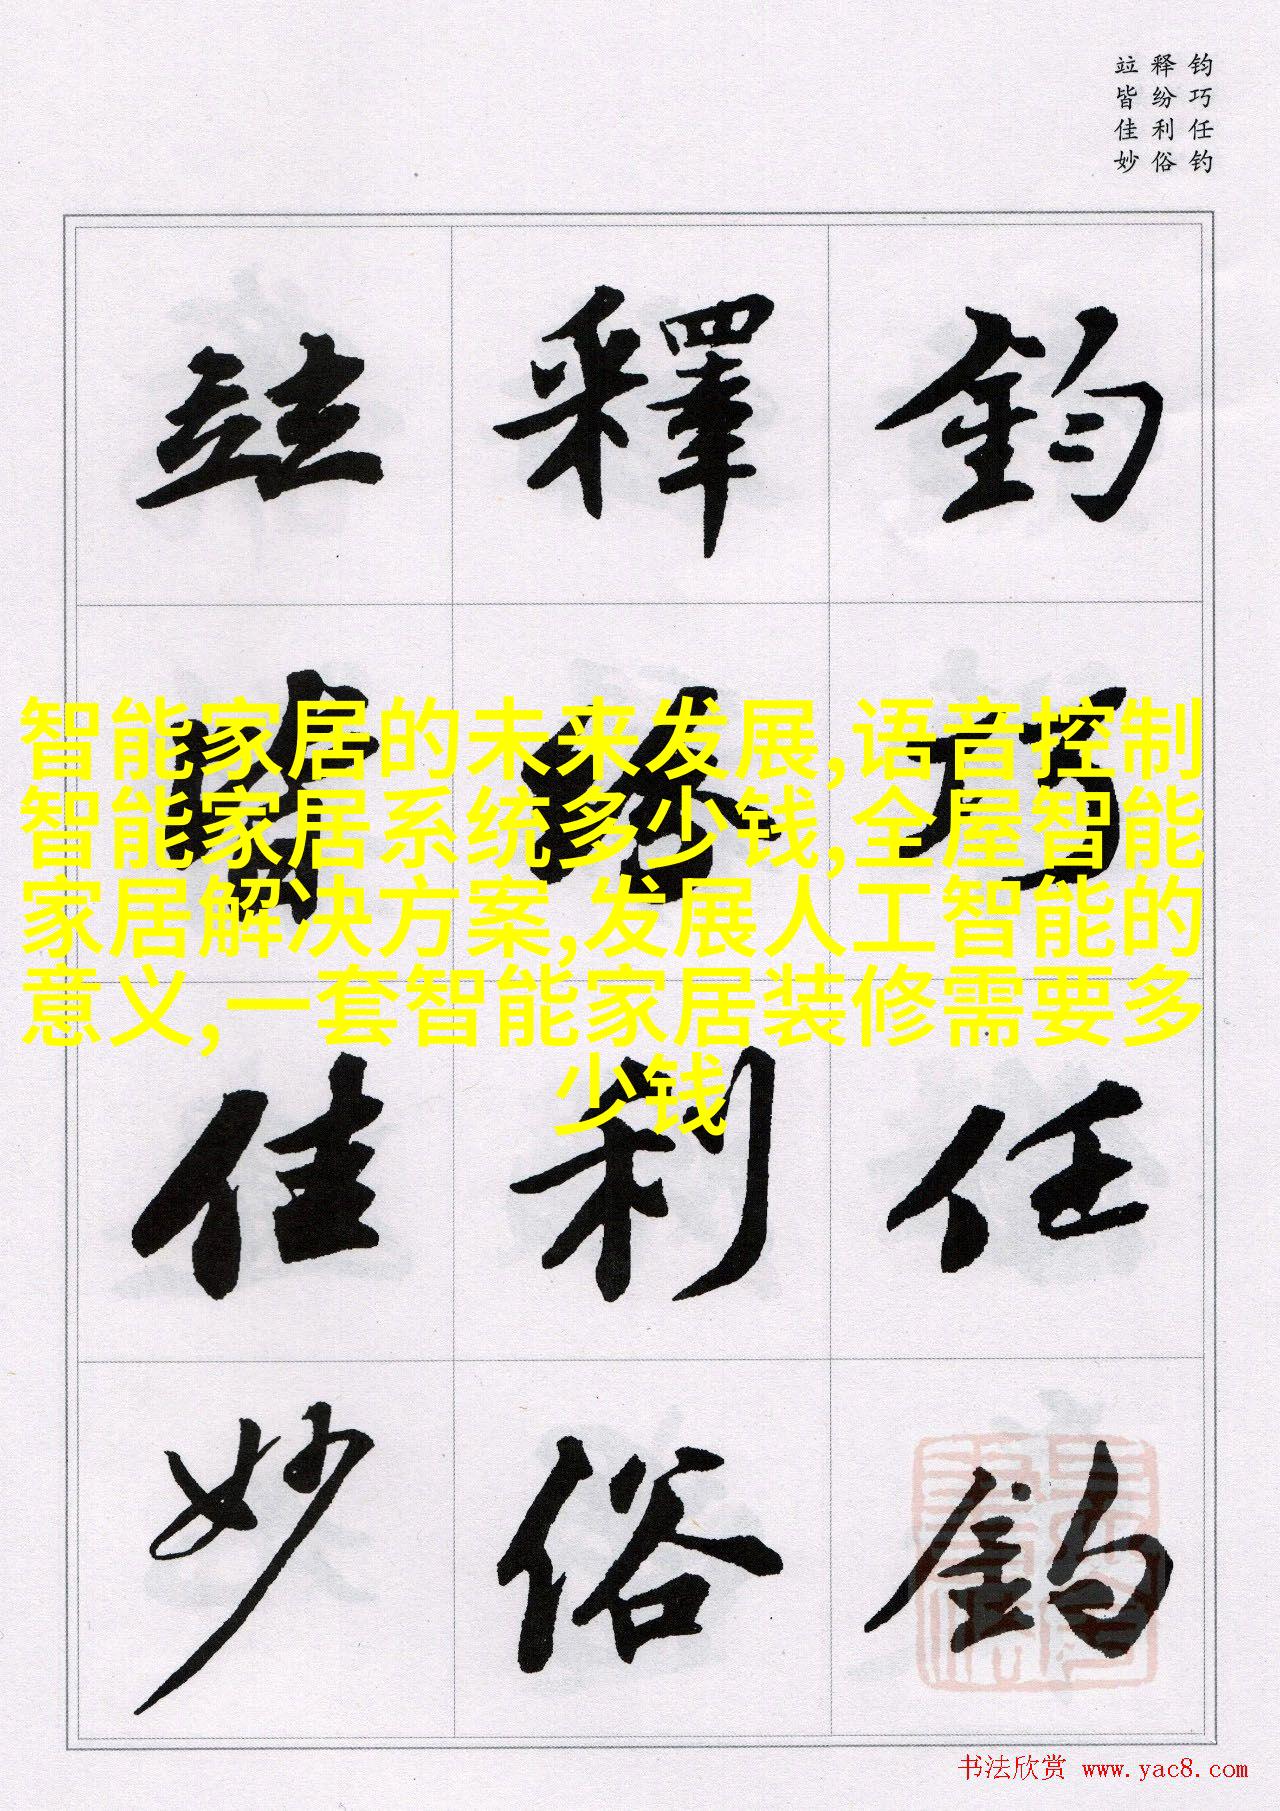 钧巧任钓
释纷利俗
竝皆佳妙
鈞巧任釣
釋紛利俗
竝皆佳妙
智能家居的未来发展,语音控制
智能家居系统多少钱,全屋智能
家居解决方案,发展人工智能的
意义,一套智能家居装修需要多
少钱
书法欣赏 www.yac8.com